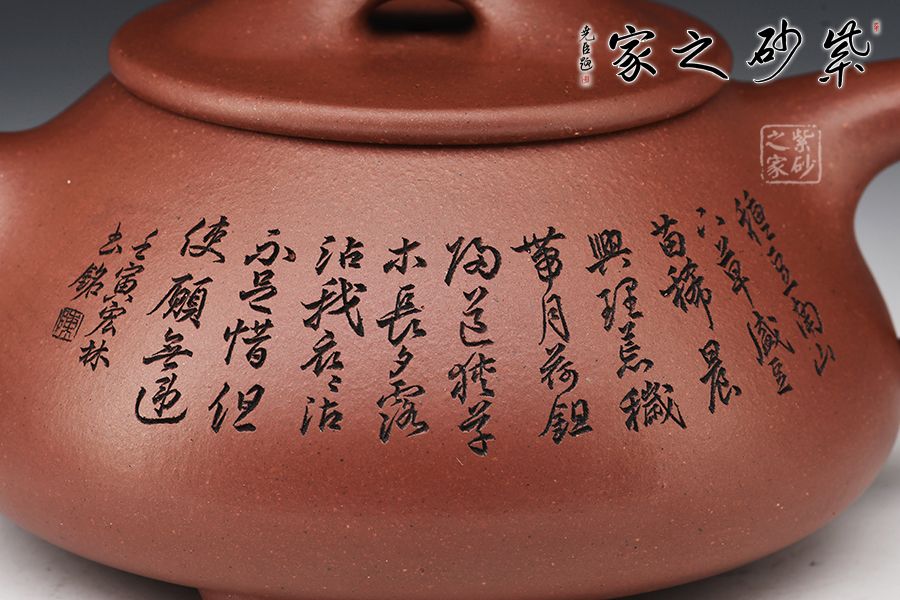 紫砂之家
堯臣題
紫砂
之家
種豆南山
下草盛豆
苗稀晨
興理荒穢
帶月荷鉏
歸道狹草
木長夕露
沾我衣〻沾
不足惜但
使願無違
壬寅宏林
书銘